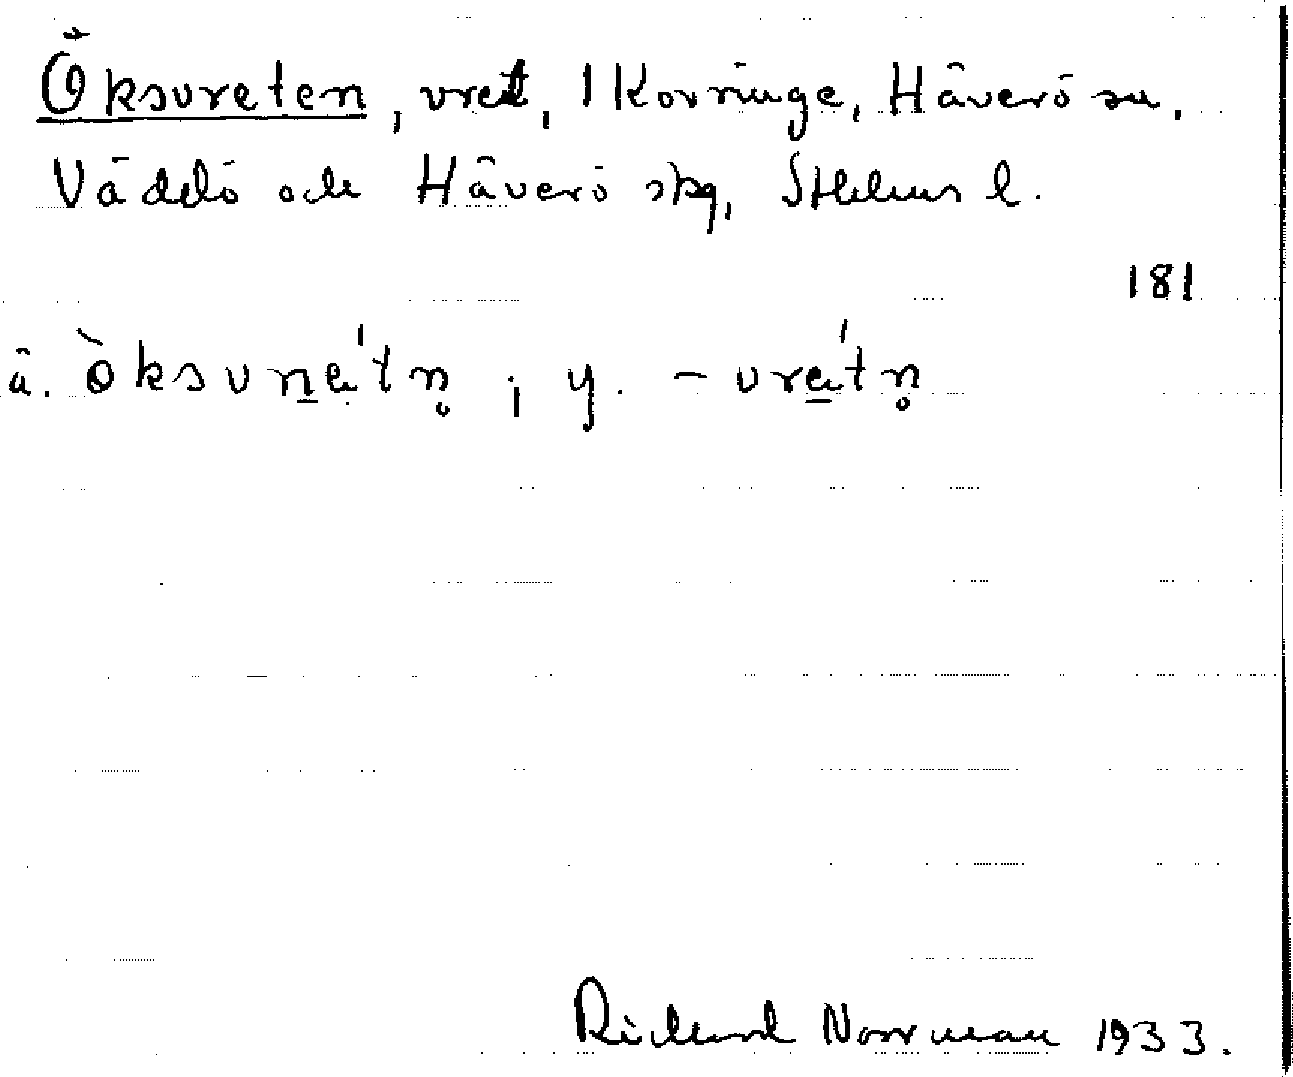 Öksvreten, vret, 1 Korringe, Häverö sn,
Väddö och Häverö skg, Sthlms l.
181
ä. ö̀ksvrée̍tn̥ ; y. -vrée̍tn̥
Richard Norrman 1933.